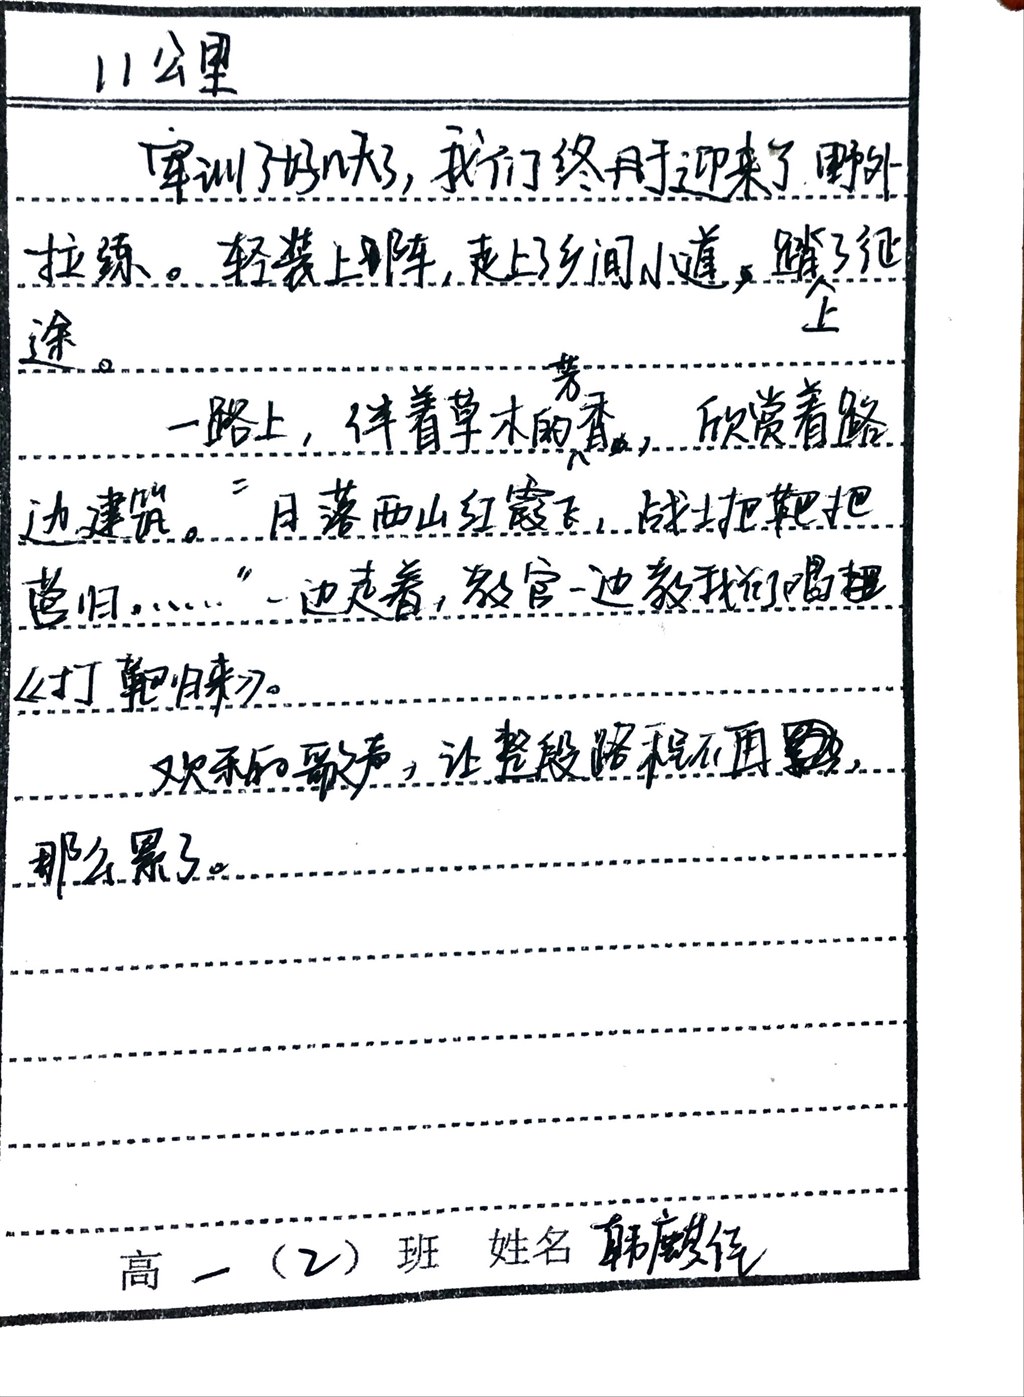 11公里
军训了好几天了，我们终于迎来了野外
拉练。轻装上阵，走上了乡间小道，踏上了征
途。
一路上，伴着草木的芳香，欣赏着路
边建筑。“日落西山红霞飞，战士把靶把
营归……”一边走着，教官一边教我们唱
《打靶归来》。
欢乐的歌声，让整段路程不再
那么累了。
高一（2）班 姓名 韩麒佳